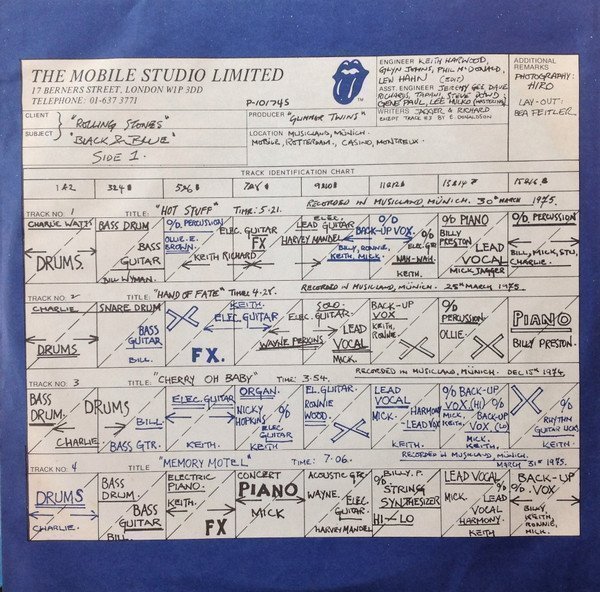 THE MOBILE STUDIO LIMITED
17 BERNERS STREET, LONDON W1P 3DD
TELEPHONE: 01-637 3771
P-101745
ENGINEER KEITH HARWOOD,
GLYN JOHNS, PHIL McDONALD,
LEW HAHN (EDIT)
ASST. ENGINEER JEREMY GEE, DAVE
RICHARDS, TAPANI, STEVE DOWD,
GENE PAUL, LEE HULKO (MASTERING)
WRITERS JAGGER & RICHARD
EXCEPT TRACK #3 BY E. DONALDSON
ADDITIONAL
REMARKS
PHOTOGRAPHY:
HIRO
LAY-OUT:
BEA FEITLER.
CLIENT "ROLLING STONES"
SUBJECT "BLACK & BLUE"
SIDE 1.
PRODUCER "GLIMMER TWINS"
LOCATION MUSICLAND, MÜNICH.
MOBILE, ROTTERDAM, CASINO, MONTREUX.
TRACK IDENTIFICATION CHART
1 & 2 3 & 4 5 & 6 7 & 8 9 & 10 11 & 12 13 & 14 15 & 16
RECORDED IN MUSICLAND, MÜNICH. 30th MARCH 1975.
TRACK NO. 1 TITLE: "HOT STUFF" TIME: 5.21.
CHARLIE WATTS
DRUMS.
BASS DRUM
BASS
GUITAR
BILL WYMAN.
% PERCUSSION
OLLIE. E.
BROWN.
ELEC. GUITAR
FX
KEITH RICHARD
ELEC.
LEAD GUITAR
HARVEY MANDEL
O/D
BACK-UP VOX.
BILLY, RONNIE,
KEITH, MICK.
%
ELEC. GTR
WAH-WAH
KEITH.
% PIANO
BILLY
PRESTON
LEAD
VOCAL
MICK JAGGER
% PERCUSSION
BILL, MICK, STU,
CHARLIE.
RECORDED IN MUSICLAND, MÜNICH. 25th MARCH 1975.
TRACK NO. 2 TITLE: "HAND OF FATE" TIME: 4.28.
CHARLIE
DRUMS
SNARE DRUM
BASS
GUITAR
BILL.
FX.
KEITH.
ELEC. GUITAR
WAYNE PERKINS
SOLO.
ELEC. GUITAR
LEAD
VOCAL
MICK.
BACK-UP
VOX.
KEITH,
RONNIE.
%
PERCUSSION
OLLIE.
PIANO
BILLY PRESTON.
RECORDED IN MUSICLAND, MÜNICH. DEC 15th 1974.
TRACK NO. 3 TITLE: "CHERRY OH BABY" TIME: 3.54.
BASS
DRUM.
DRUMS
CHARLIE
BILL.
BASS GTR.
ELEC. GUITAR
KEITH.
ORGAN.
NICKY
HOPKINS
%
ELEC
GUITAR
KEITH
EL. GUITAR.
RONNIE
WOOD.
LEAD
VOCAL
MICK.
HARMONY
LEAD VOX
KEITH.
% BACK-UP
VOX. (HI) %
MICK,
KEITH.
BACK-UP
VOX. (LO)
MICK, KEITH.
%
RHYTHM
GUITAR
KEITH.
RECORDED IN MUSICLAND, MÜNICH.
MARCH 31st 1975.
TRACK NO. 4 TITLE "MEMORY MOTEL" TIME: 7.06.
DRUMS
CHARLIE.
BASS
DRUM.
BASS
GUITAR
BILL.
ELECTRIC
PIANO.
KEITH.
FX
CONCERT
PIANO
MICK
ACOUSTIC GTR.
WAYNE.
ELEC.
GUITAR.
HARVEY MANDEL
BILLY. P.
%
STRING
SYNTHESIZER
HI-LO
LEAD VOCAL
MICK.
%
LEAD
VOCAL
HARMONY.
KEITH
BACK-UP
% VOX.
BILLY,
KEITH,
RONNIE,
MICK.